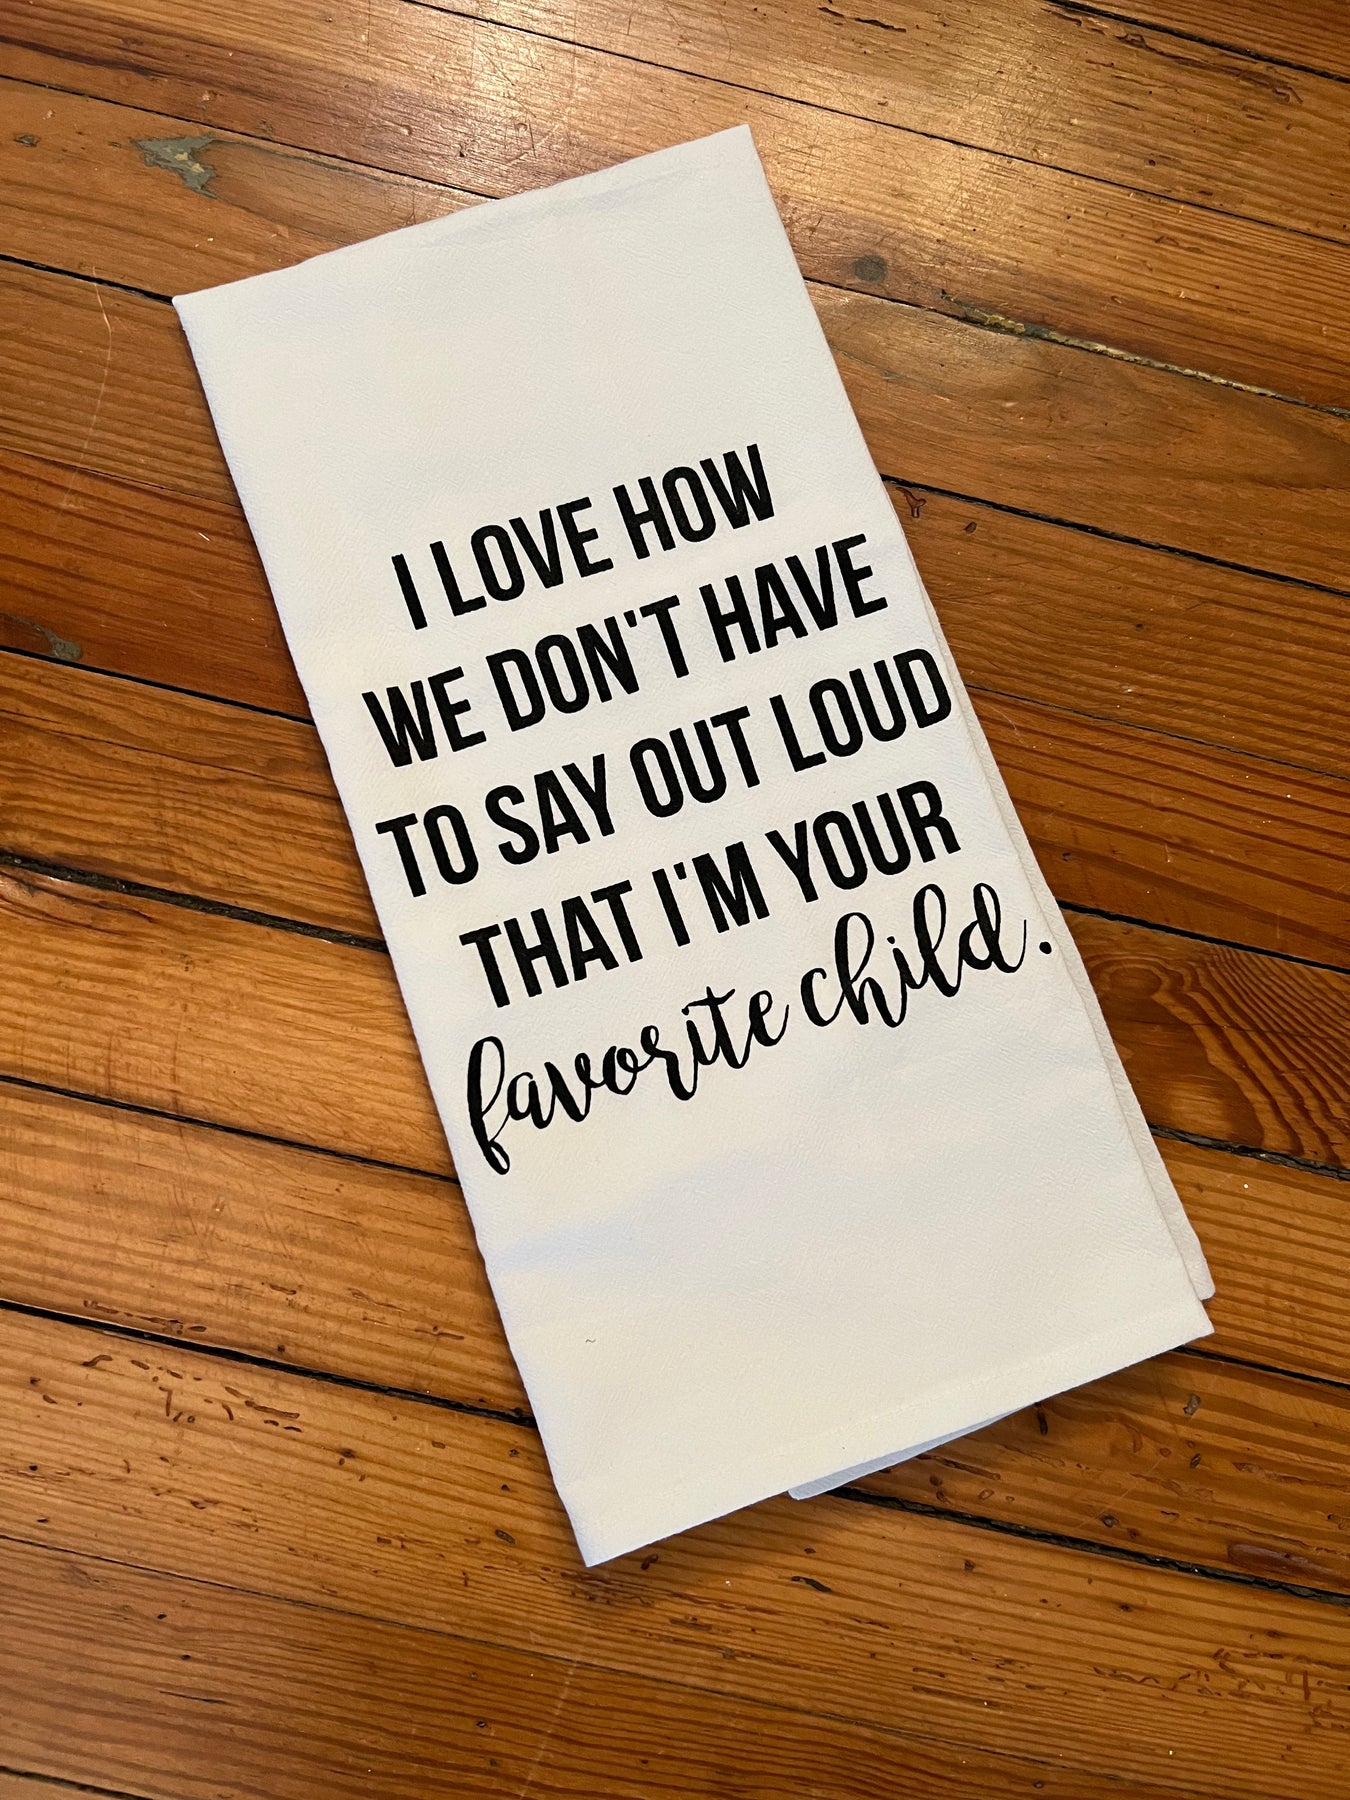 I LOVE HOW
WE DON'T HAVE
TO SAY OUT LOUD
THAT I'M YOUR
favorite child.